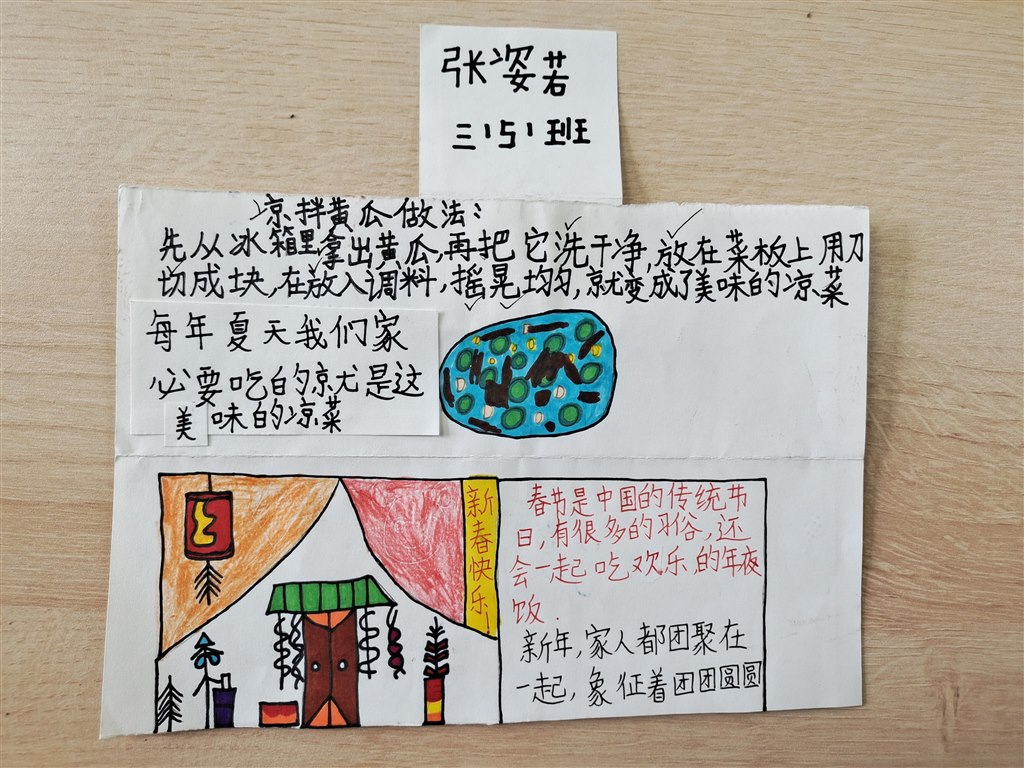 张姿若
三151班
凉拌黄瓜做法:
先从冰箱里拿出黄瓜,再把它洗干净,放在菜板上用刀
切成块,在放入调料,摇晃均匀,就变成了美味的凉菜
每年夏天我们家
必要吃的凉尤是这
美味的凉菜
新春快乐!
春节是中国的传统节
日,有很多的习俗,还
会一起吃欢乐的年夜
饭.
新年,家人都团聚在
一起,象征着团团圆圆